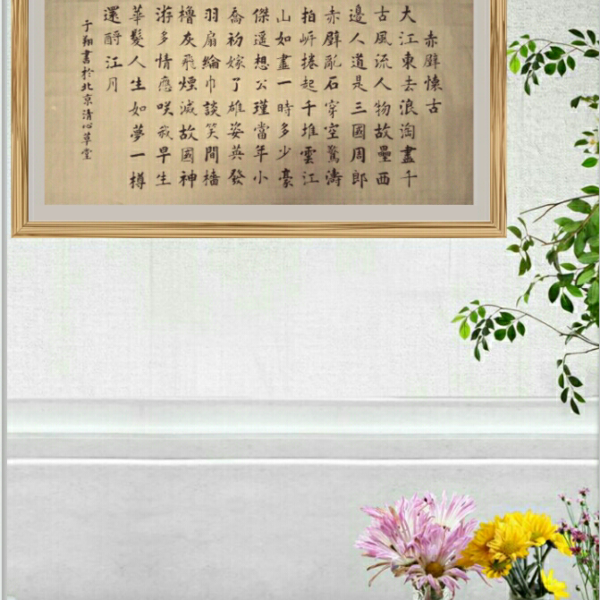 赤壁懷古
大江東去浪淘盡千
古風流人物故壘西
邊人道是三國周郎
赤壁亂石穿空驚濤
拍岸捲起千堆雪江
山如畫一時多少豪
傑遥想公瑾當年小
喬初嫁了雄姿英發
羽扇綸巾談笑間檣
櫓灰飛煙滅故國神
游多情應咲我早生
華髮人生如夢一樽
還酹江月
于翔書於北京清心草堂